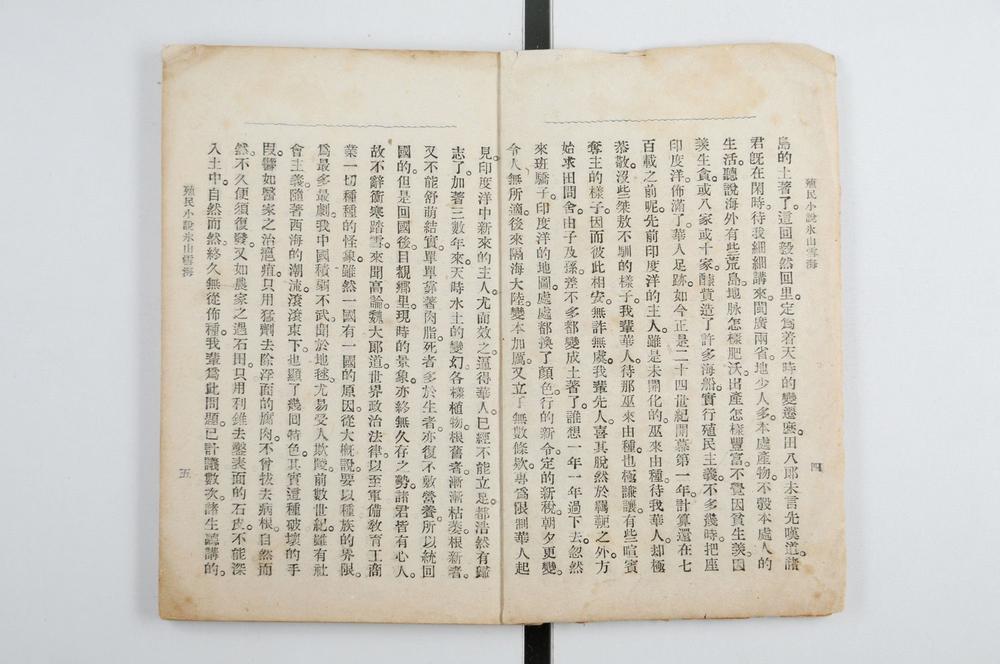 殖民小說冰山雪海
島的土著了這回毅然回里定爲着天時的變遷麽田八郞未言先嘆道諸
君旣在閑時待我細細講來閩廣兩省地少人多本處產物不彀本處人的
生活聽說海外有些荒島地脉怎樣肥沃出產怎樣豐富不覺因貧生羨因
羨生貪或八家或十家醵貲造了許多海船實行殖民主義不多幾時把座
印度洋佈滿了華人足跡如今正是二十四世紀開幕第一年計算還在七
百載之前呢先前印度洋的主人雖是未開化的巫來由種待我華人却極
恭敬沒些桀敖不馴的樣子我輩華人待那巫來由種也極謙讓有些喧賓
奪主的樣子因而彼此相安無詐無虞我輩先人喜其脫然於羈靮之外方
始求田問舍由子及孫差不多都變成土著了誰想一年一年過下去忽然
來班驕子印度洋的地圖處處都換了顔色行的新令定的新稅朝夕更變
令人無所適後來隔海大陸變本加厲又立了無數條欵專爲限制華人起
四
見印度洋中新來的主人尤而效之逼得華人已經不能立足都浩然有歸
志了加著三數年來天時水土的變幻各樣植物根舊者漸漸枯萎根新者
又不能舒萌結實單單靠著肉脂死者多於生者亦復不敷營養所以統回
國的但是回國後目覩鄕里現時的景象亦終無久存之勢諸君皆有心人
故不辭衝寒踏雪來聞高論魏大郞道世界政治法律以至軍備敎育工商
業一切種種的怪象雖然一國有一國的原因從大槪說要以種族的界限
爲最多最劇我中國積弱不武聞於地毬尤易受人欺陵前數世紀雖有社
會主義隨著西海的潮流滾滾東下也顯了幾回特色其實這種破壞的手
段譬如醫家之治瘡疽只用猛劑去除浮面的腐肉不曾拔去病根自然而
然不久便須復發又如農家之遇石田只用利錐去鑿表面的石皮不能深
入土中自然而然終久無從佈種我輩爲此問題已計議數次諸生聽講的
殖民小說冰山雪海
五